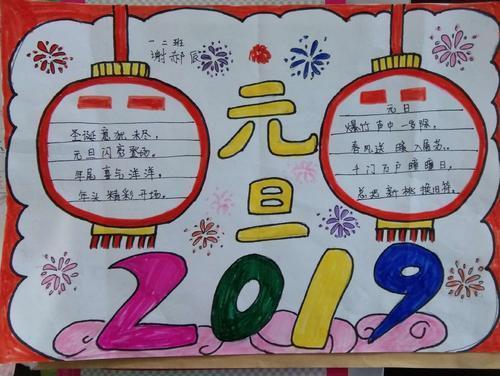 一二班
谢郝辰
元旦
圣诞意犹未尽，
元旦闪亮登场。
年尾喜气洋洋，
年头精彩开场。
元日
爆竹声中一岁除，
春风送暖入屠苏。
千门万户曈曈日，
总把新桃换旧符。
2019